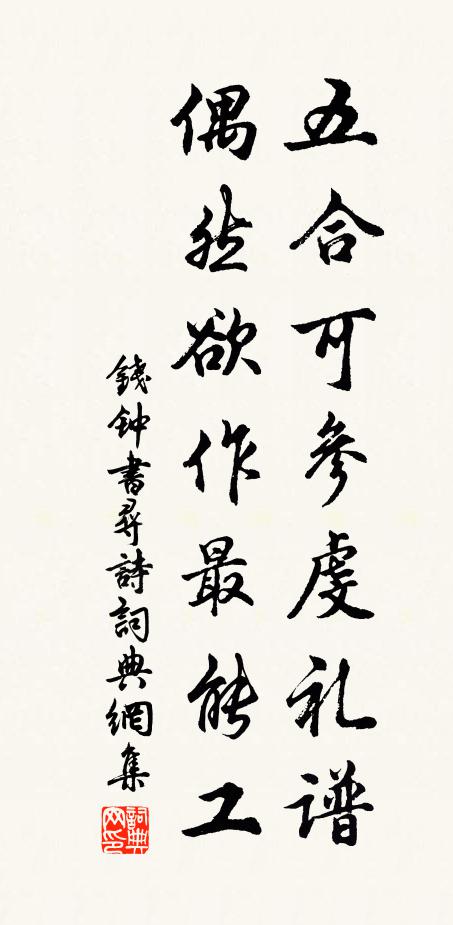 五合可参虔礼谱
偶然欲作最能工
錢钟書尋詩詞典網集
詞典网印